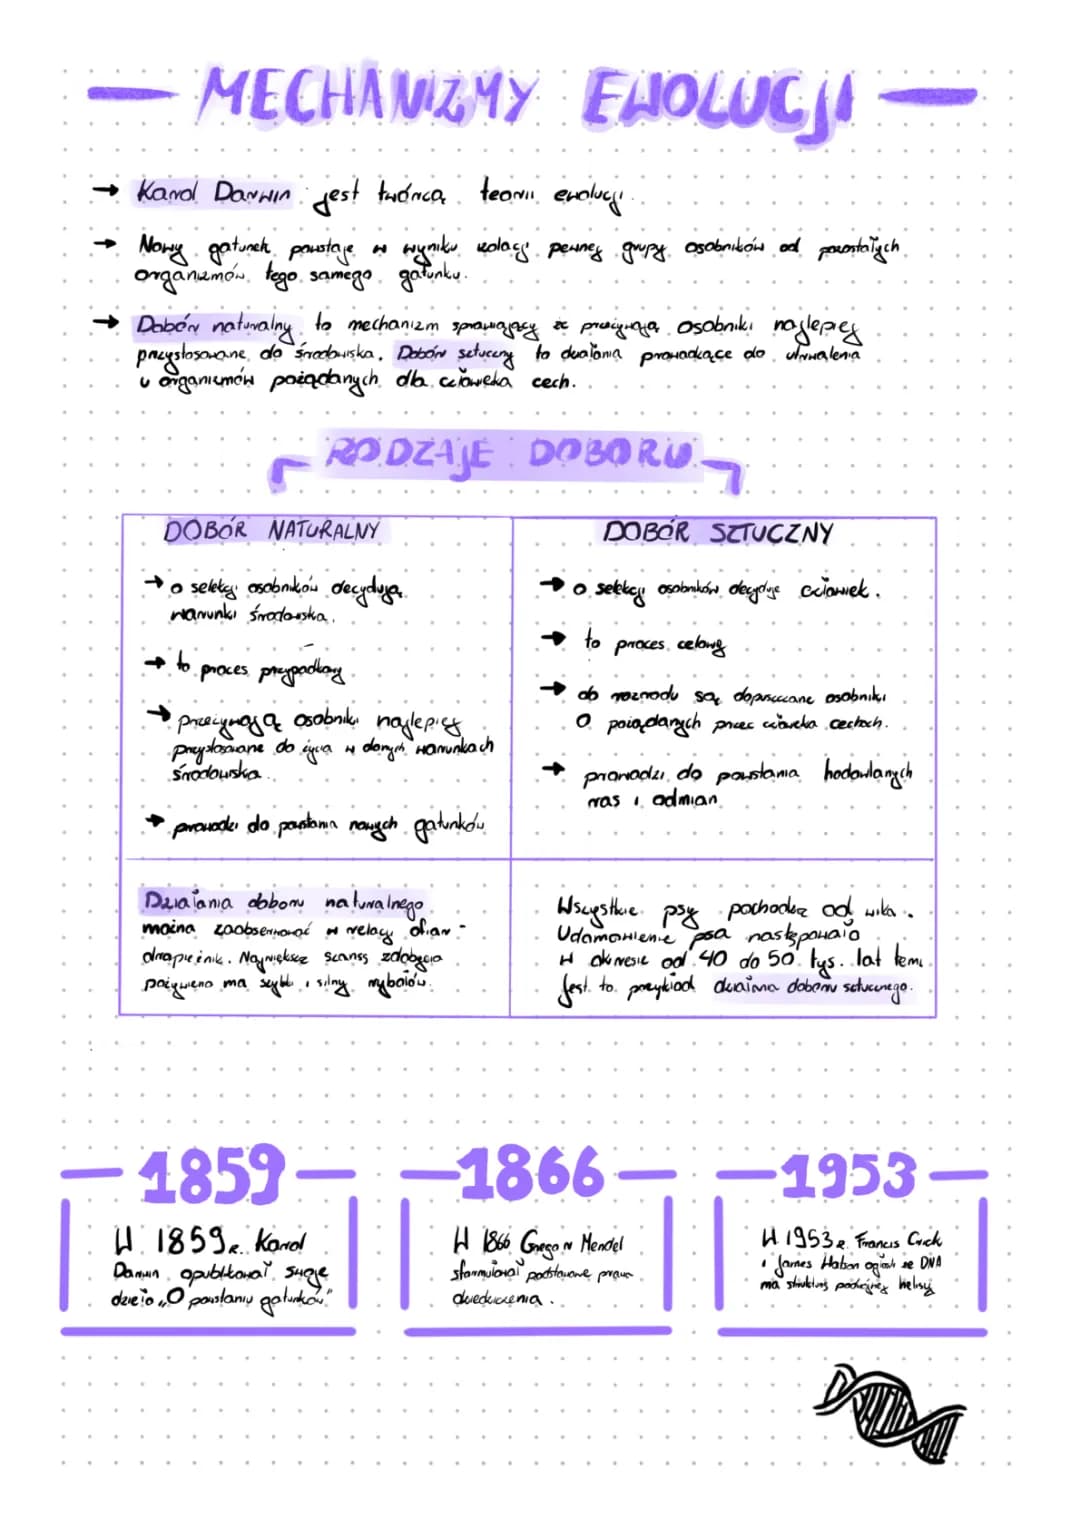 MECHANIZMY EWOLUCJI
→ Karol Darwin jest twórcą teorii ewolucji.
→ Nowy gatunek powstaje w wyniku izolacji pewnej grupy osobników od pozostałych
organizmów tego samego gatunku.
→ Dobór naturalny to mechanizm sprawiający że przeżywają osobniki najlepiej
przystosowane do środowiska. Dobór sztuczny to działania prowadzące do utrwalenia
u organizmów pożądanych dla człowieka cech.
RODZAJE DOBORU
DOBÓR NATURALNY
→ o selekcji osobników decydują
warunki środowiska.
→ to proces przypadkowy
→ przeżywają osobniki najlepiej
przystosowane do życia w danych warunkach
środowiska.
→ prowadzi do powstania nowych gatunków
DOBÓR SZTUCZNY
→ o selekcji osobników decyduje człowiek.
→ to proces celowy
→ do rozrodu są dopuszczane osobniki
o pożądanych przez człowieka cechach.
→ prowadzi do powstania hodowlanych
ras i odmian.
Działania doboru naturalnego
można zaobserwować w relacji ofiar-
drapieżnik. Największe szanse zdobycia
pożywienia ma szybki i silny rybołów.
Wszystkie psy pochodzą od wilka.
Udomowienie psa następowało
w okresie od 40 do 50 tys. lat temu
Jest to przykład działania doboru sztucznego.
1859
W 1859r. Karol
Darwin opublikował swoje
dzieło „O powstaniu gatunków"
1866
W 1866 Gregor Mendel
sformułował podstawowe prawa
dziedziczenia.
1953
W 1953r. Francis Crick
i James Watson ogłosili że DNA
ma strukturę podwójnej helisy